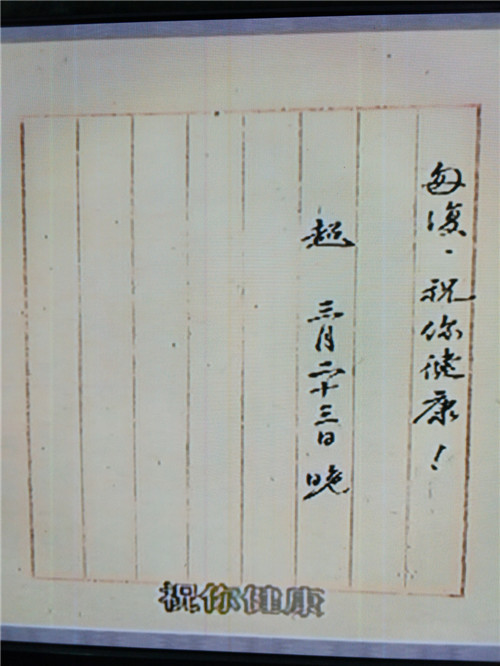 匆复，祝你健康！
超 三月二十三日晚
祝你健康